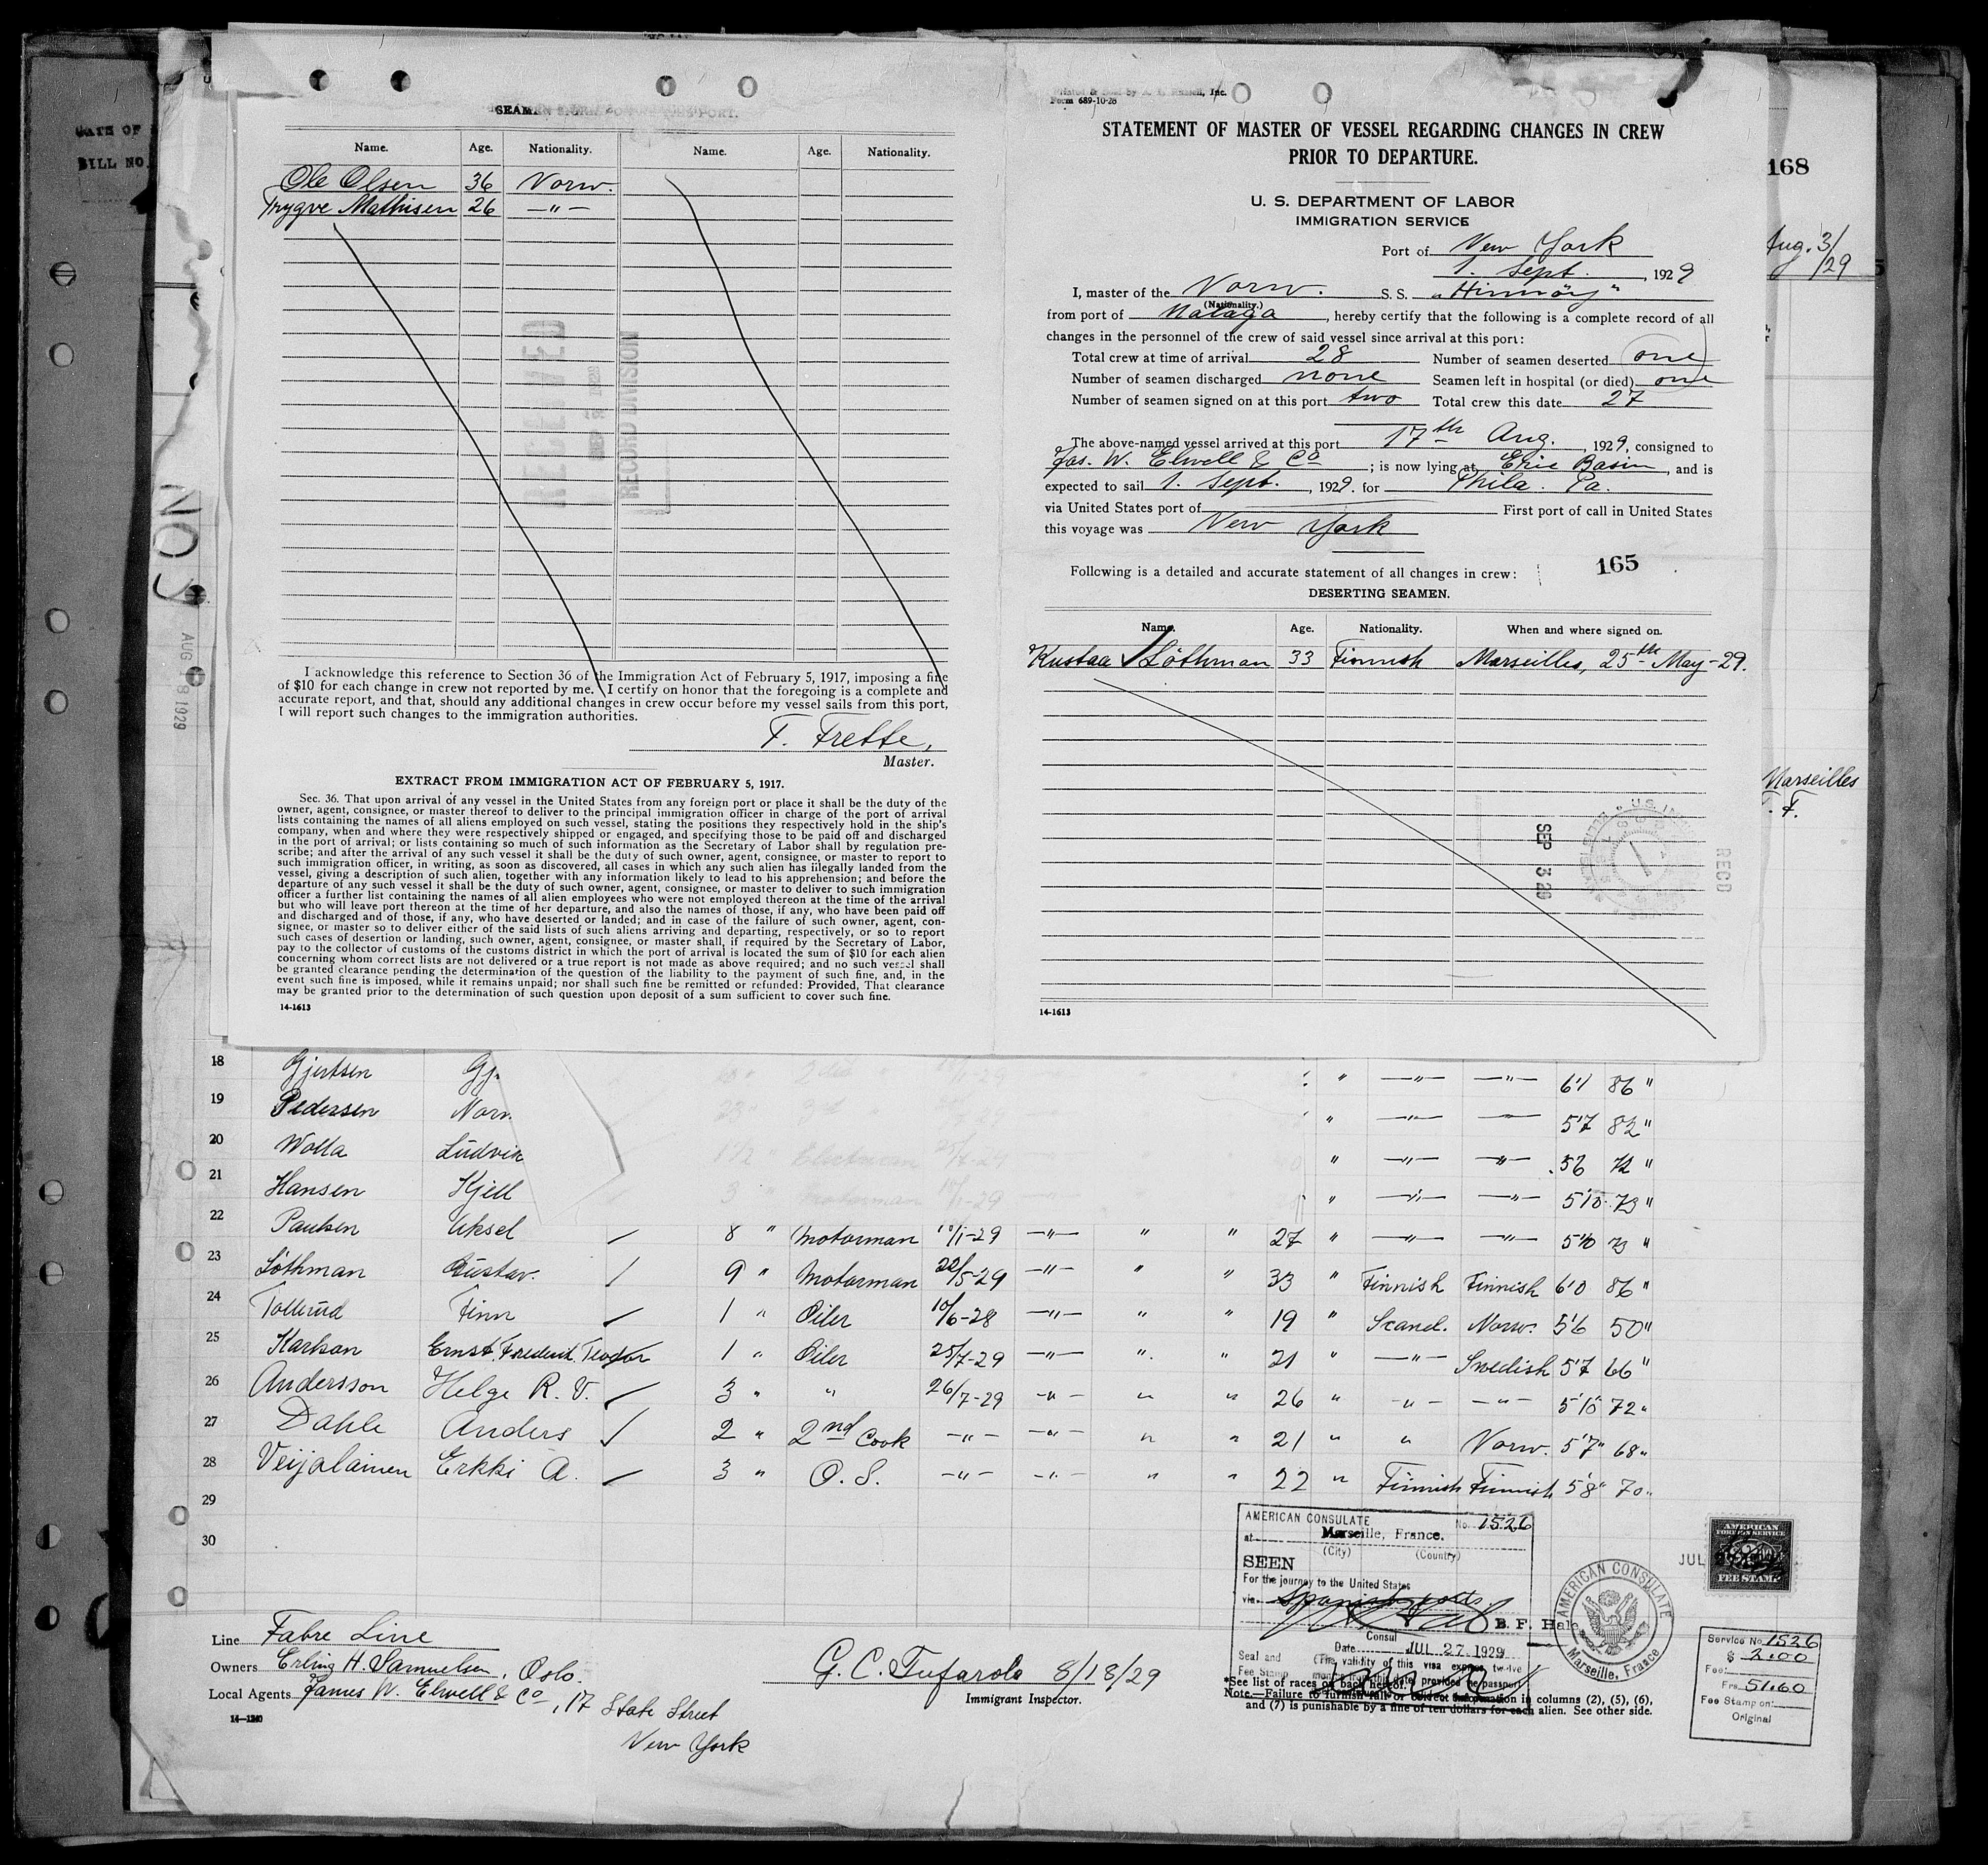 DATE OF
BILL NO.
SEAMEN SIGNED ON AT THIS PORT.
Name. Age. Nationality. Name. Age. Nationality.
Ole Olsen 36 Norw.
Trygve Mathisen 26 —"—
RECEIVED
RECORD DIVISION
I acknowledge this reference to Section 36 of the Immigration Act of February 5, 1917, imposing a fine
of $10 for each change in crew not reported by me. I certify on honor that the foregoing is a complete and
accurate report, and that, should any additional changes in crew occur before my vessel sails from this port,
I will report such changes to the immigration authorities.
T. Frette,
Master.
EXTRACT FROM IMMIGRATION ACT OF FEBRUARY 5, 1917.
Sec. 36. That upon arrival of any vessel in the United States from any foreign port or place it shall be the duty of the
owner, agent, consignee, or master thereof to deliver to the principal immigration officer in charge of the port of arrival
lists containing the names of all aliens employed on such vessel, stating the positions they respectively hold in the ship's
company, when and where they were respectively shipped or engaged, and specifying those to be paid off and discharged
in the port of arrival; or lists containing so much of such information as the Secretary of Labor shall by regulation pre-
scribe; and after the arrival of any such vessel it shall be the duty of such owner, agent, consignee, or master to report to
such immigration officer, in writing, as soon as discovered, all cases in which any such alien has illegally landed from the
vessel, giving a description of such alien, together with any information likely to lead to his apprehension; and before the
departure of any such vessel it shall be the duty of such owner, agent, consignee, or master to deliver to such immigration
officer a further list containing the names of all alien employees who were not employed thereon at the time of the arrival
but who will leave port thereon at the time of her departure, and also the names of those, if any, who have been paid off
and discharged and of those, if any, who have deserted or landed; and in case of the failure of such owner, agent, con-
signee, or master so to deliver either of the said lists of such aliens arriving and departing, respectively, or so to report
such cases of desertion or landing, such owner, agent, consignee, or master shall, if required by the Secretary of Labor,
pay to the collector of customs of the customs district in which the port of arrival is located the sum of $10 for each alien
concerning whom correct lists are not delivered or a true report is not made as above required; and no such vessel shall
be granted clearance pending the determination of the question of the liability to the payment of such fine, and, in the
event such fine is imposed, while it remains unpaid; nor shall such fine be remitted or refunded: Provided, That clearance
may be granted prior to the determination of such question upon deposit of a sum sufficient to cover such fine.
14-1613
Form 689-10-28
STATEMENT OF MASTER OF VESSEL REGARDING CHANGES IN CREW
PRIOR TO DEPARTURE.
U. S. DEPARTMENT OF LABOR
IMMIGRATION SERVICE
Port of New York
1. Sept. , 1929
I, master of the Norw. S. S. "Hinnöy"
(Nationality.)
from port of Malaga , hereby certify that the following is a complete record of all
changes in the personnel of the crew of said vessel since arrival at this port:
Total crew at time of arrival 28 Number of seamen deserted one
Number of seamen discharged none Seamen left in hospital (or died) one
Number of seamen signed on at this port two Total crew this date 27
The above-named vessel arrived at this port 17th Aug. , 1929, consigned to
Jas. W. Elwell & Co ; is now lying at Erie Basin , and is
expected to sail 1. Sept. , 1929. for Phila. Pa.
via United States port of First port of call in United States
this voyage was New York
165
Following is a detailed and accurate statement of all changes in crew:
DESERTING SEAMEN.
Name. Age. Nationality. When and where signed on.
Kustaa Löthman 33 Finnish Marseilles, 25th May-29.
SEP 3 29
RECD
14-1613
168
Aug. 3/29
Marseilles
AUG 18 1929
18 Gjertsen Gj. " —"— —"— 6'1 86"
19 Pedersen Norm. " —"— 5'7 82"
20 Wolla Ludvik " —"— —"— 5'6 72 "
21 Hansen Kjell " —"— —"— 5'10 73 "
22 Paulsen Aksel 8 " Motorman 10/1-29 —"— " " 27 " —"— —"— 5'10 73 "
23 Löthman Gustav. 9 " Motorman 22/5-29 —"— " " 33 " Finnish Finnish 6'0 86"
24 Tollerud Finn 1 " Oiler 10/6-28 —"— " " 19 " Scand. Norw. 5'6 50"
25 Karlson Ernst Frederik Teodor 1 " Oiler 25/7-29 —"— " " 21 " —"— Swedish 5'7 66"
26 Andersson Helge R. V. 3 " " 26/7-29 —"— " " 26 " —"— —"— 5'10" 72"
27 Dahle Anders 2 " 2nd Cook —"— —"— " " 21 " " Norw. 5'7" 68"
28 Veijalainen Erkki A. 3 " O. S. —"— —"— " " 22 " Finnish Finnish 5'8" 70"
29
30
AMERICAN CONSULATE No. 1526
at Marseille, France.
(City) (Country)
SEEN
For the journey to the United States
via Spanish ports
B. F. Hal
Consul
Date JUL 27. 1929
Seal and
Fee Stamp
(The validity of this visa expires twelve
AMERICAN CONSULATE
Marseille, France
AMERICAN
FOREIGN SERVICE
FEE STAMP
JUL
Service No. 1526
$ 2.00
Fee:
Frs. 51.60
Fee Stamp on:
Original
Line Fabre Line
Owners Erling H. Samuelsen, Oslo.
Local Agents James W. Elwell & Co, 17 State Street
New York
14—1240
G. C. Tufarolo 8/18/29
Immigrant Inspector.
*See list of races on back hereof.
Note.—Failure to furnish full or correct information in columns (2), (5), (6),
and (7) is punishable by a fine of ten dollars for each alien. See other side.